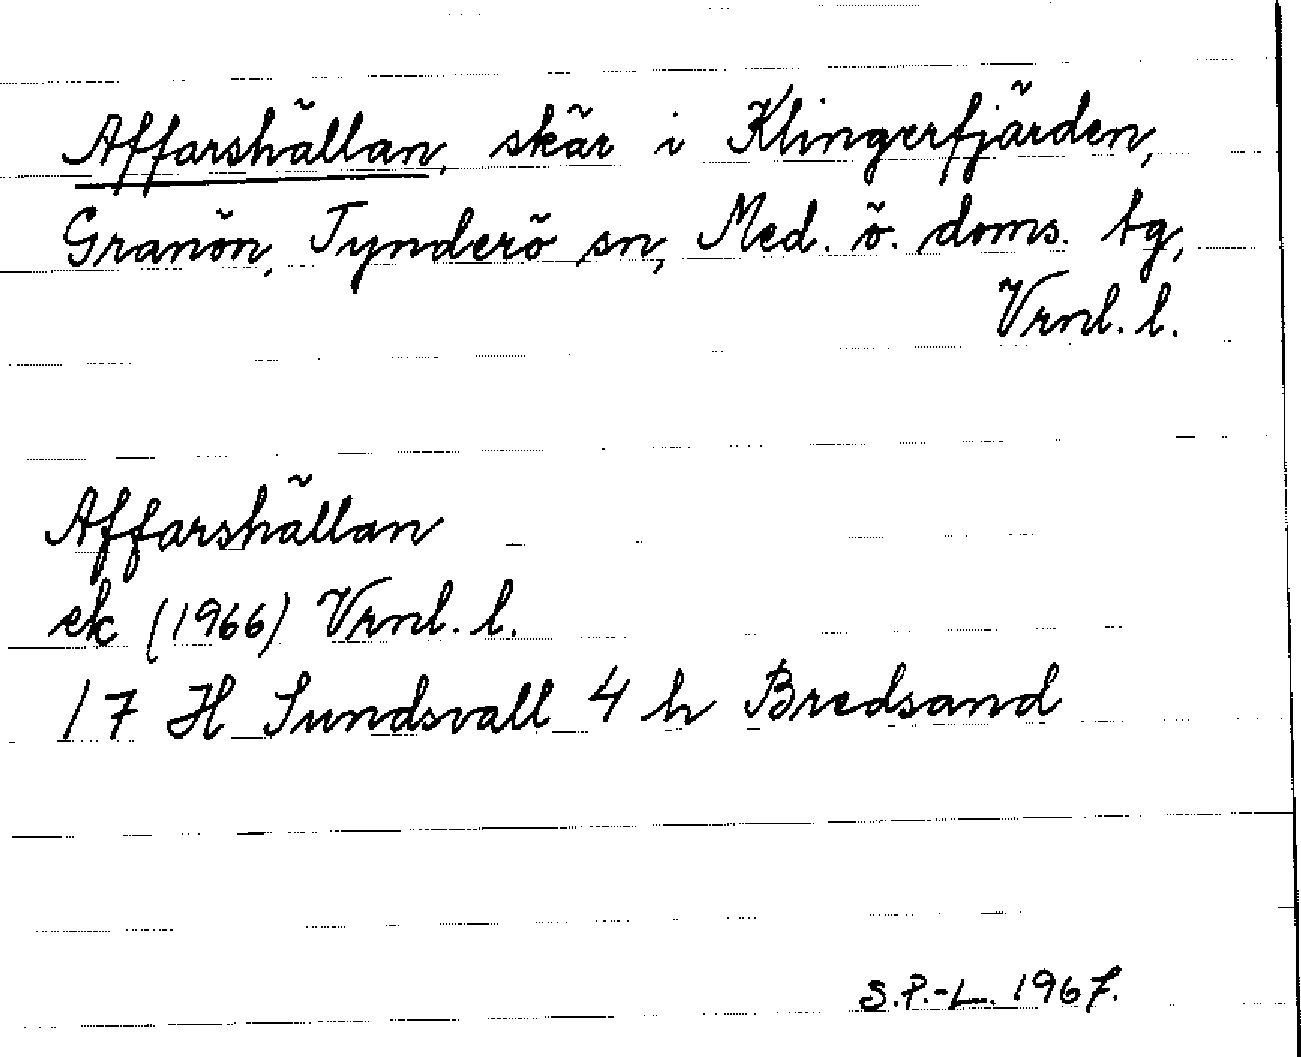 Affarshällan, skär i Klingerfjärden,
Granön, Tynderö sn, Med. ö. doms. tg,
Vrnl. l.
Affarshällan
ek (1966) Vrnl. l.
17 H Sundsvall 4 h Bredsand
S.P.-L. 1967.